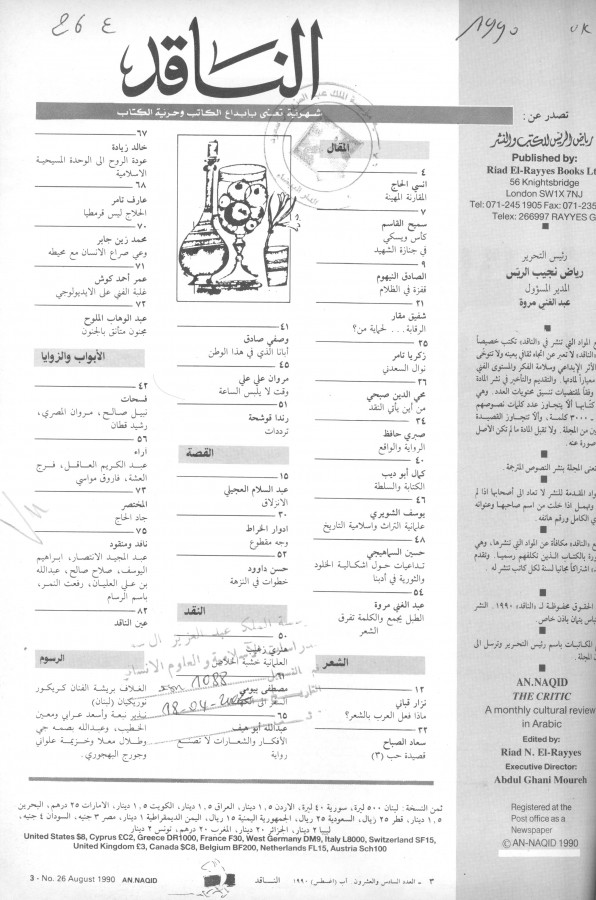 26 ع
1990
UK
الناقد
شهرية تعنى بابداع الكاتب وحرية الكتاب
المقال
٤
انسي الحاج
المقارنة المهينة
٧
سميح القاسم
كأس ويسكي
في جنازة الشهيد
٩
الصادق النيهوم
قفزة في الظلام
٢١
شفيق مقار
الرقابة... لحماية من؟
٢٥
زكريا تامر
نوال السعدني
٢٦
محي الدين صبحي
من أين يأتي النقد
٣٤
صبري حافظ
الرواية والواقع
٤٠
كمال أبو ديب
الكتابة والسلطة
٤٦
يوسف الشويري
علمانية التراث واسلامية التاريخ
٤٨
حسين السماهيجي
تداعيات حول اشكالية الخلود
والثورية في أدبنا
٥٤
عبد الغني مروة
الطبل يجمع والكلمة تفرق
الشعر
الشعر
١٢
نزار قباني
ماذا فعل العرب بالشعر؟
٣٢
سعاد الصباح
قصيدة حب (٣)
٤١
وصفي صادق
أبانا الذي في هذا الوطن
٤٥
مروان علي علي
وقت لا يلبس الساعة
٥١
رندا قوشحة
ترددات
القصة
١٥
عبد السلام العجيلي
الانزلاق
٣٠
ادوار الخراط
وجه مقطوع
٥٢
حسن داوود
خطوات في النزهة
النقد
٥٠
العلمانية خشبة الخلاص
مصطفى بيومي
1088
18-04-
٦٥
عبدالله أبو هيف
الأفكار والشعارات لا تصنع
رواية
٦٧
خالد زيادة
عودة الروح الى الوحدة المسيحية
الاسلامية
٦٨
عارف تامر
الحلاج ليس قرمطيا
٧٠
محمد زين جابر
وعي صراع الانسان مع محيطه
٧١
عمر أحمد كوش
غلبة الفني على الايديولوجي
٧٢
عبد الوهاب الملوح
مجنون متأنق بالجنون
الأبواب والزوايا
٤٢
فسحات
نبيل صالح، مروان المصري،
رشيد قطان
٥٦
آراء
عبد الكريم العاقل، فرج
العشة، فاروق مواسي
٧٣
المختصر
جاد الحاج
٧٥
ناقد ومنقود
عبد المجيد الانتصار، ابراهيم
اليوسف، صلاح صالح، عبدالله
بن علي العليان، رفعت النمر،
باسم الرسام
٨٢
عين الناقد
الرسوم
الغلاف بريشة الفنان كريكور
نوريكيان (لبنان)
نبعة وأسعد عرابي ومعين
الخطيب، وعبدالله بصمه جي
وطلال معلا وخزيمة علواني
وجورج البهجوري.
تصدر عن:
رياض الريس للكتب والنشر
Published by:
Riad El-Rayyes Books Lt
56 Knightsbridge
London SW1X 7NJ
Tel: 071-245 1905 Fax: 071-235
Telex: 266997 RAYYES G
رئيس التحرير
رياض نجيب الريّس
المدير المسؤول
عبد الغني مروة
المواد التي تنشر في «الناقد» تكتب خصيصاً
«الناقد» لا تعبر عن اتجاه ثقافي بعينه ولا تتوخّى
الأثر الإبداعي وسلامة الفكر والمستوى الفني
معياراً لمادتها. والتقديم والتأخير في نشر المادة
وفقاً لمقتضيات تنسيق محتويات العدد. وهي
كتّابها ألا يتجاوز عدد كلمات نصوصهم
٣٠٠٠ كلمة، وألا تتجاوز القصيدة
من المجلة. ولا تقبل المادة ما لم تكن الأصل
صورة عنه.
تعنى المجلة بنشر النصوص المترجمة.
المواد المقدمة للنشر لا تعاد الى أصحابها اذا لم
وتهمل اذا خلت من اسم صاحبها وعنوانه
الكامل ورقم هاتفه.
«الناقد» مكافأة عن المواد التي تنشرها، وهي
بالكتاب الذين تكلفهم رسمياً. وتقدم
اشتراكاً مجانياً لسنة لكل كاتب تنشر له.
الحقوق محفوظة لـ «الناقد» ١٩٩٠. النشر
بإذن خاص.
المكاتبات باسم رئيس التحرير وترسل الى
المجلة.
AN.NAQID
THE CRITIC
A monthly cultural review
in Arabic
Edited by:
Riad N. El-Rayyes
Executive Director:
Abdul Ghani Moureh
Registered at the
Post office as a
Newspaper
© AN-NAQID 1990
ثمن النسخة: لبنان ٥٠٠ ليرة، سورية ٤٠ ليرة، الاردن ١,٥ دينار، العراق ١,٥ دينار، الكويت ١,٥ دينار، الامارات ٢٥ درهم، البحرين
١,٥ دينار، قطر ٢٥ ريال، السعودية ٢٥ ريال، الجمهورية اليمنية ١٥ ريال، اليمن الديمقراطية ١ دينار، مصر ٣ جنيه، السودان ٤ جنيه،
ليبيا ٢ دينار، الجزائر ٢٠ دينار، المغرب ٢٠ درهم، تونس ٢ دينار
United States $8, Cyprus £C2, Greece DR1000, France F30, West Germany DM9, Italy L8000, Switzerland SF15,
United Kingdom £3, Canada $C8, Belgium BF200, Netherlands FL15, Austria Sch100
3 - No. 26 August 1990 AN.NAQID
٣ - العدد السادس والعشرون. آب (اغسطس) ١٩٩٠ الناقد